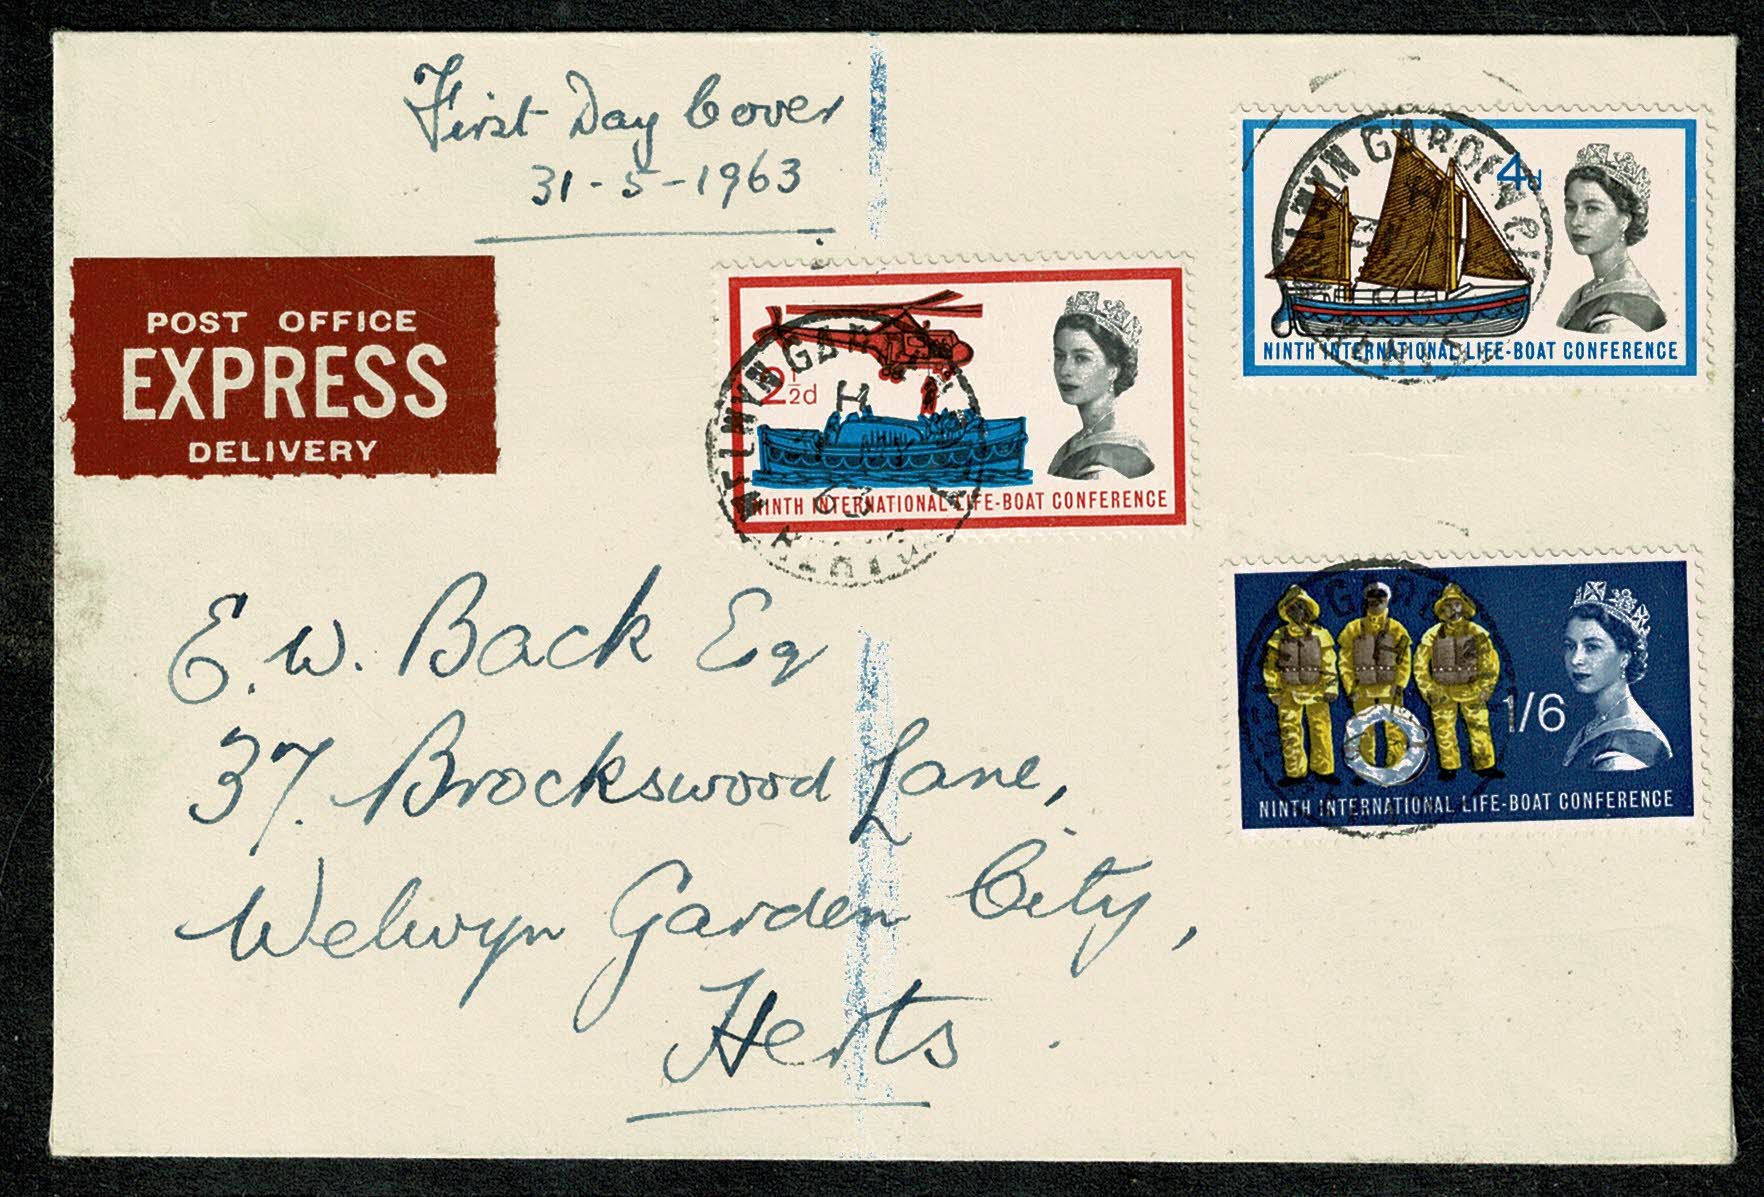 First Day Cover
31-5-1963
POST OFFICE
EXPRESS
DELIVERY
4d
NINTH INTERNATIONAL LIFE-BOAT CONFERENCE
2½d
NINTH INTERNATIONAL LIFE-BOAT CONFERENCE
WELWYN GARDEN
1/6
NINTH INTERNATIONAL LIFE-BOAT CONFERENCE
E. W. Back Esq
37. Brockswood Lane,
Welwyn Garden City,
Herts.